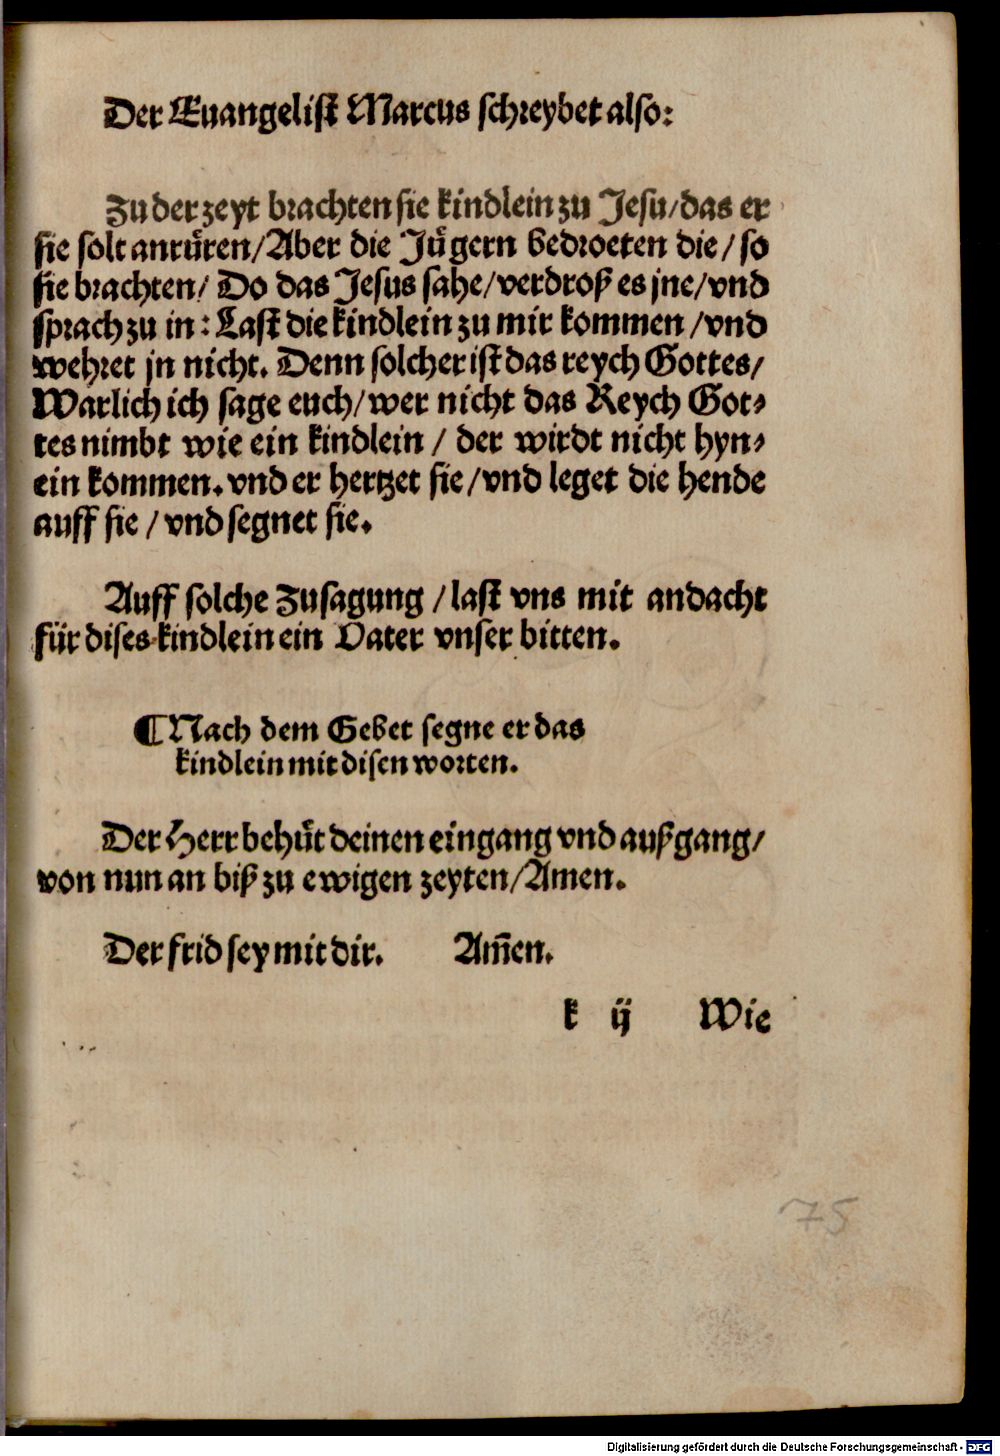 Der Euangelist Marcus schreybet also:
Zu der zeyt brachten sie kindlein zu Jesu/das er
sie solt anruͤren/Aber die Juͤgern bedroeten die/so
sie brachten/ Do das Jesus sahe/verdroß es jne/vnd
sprach zu in: Last die kindlein zu mir kommen /vnd
wehret jn nicht. Denn solcher ist das reych Gottes/
Warlich ich sage euch/wer nicht das Reych Got⸗
tes nimbt wie ein kindlein / der wirdt nicht hyn⸗
ein kommen. vnd er hertzet sie/vnd leget die hende
auff sie / vnd segnet sie.
Auff solche Zusagung /last vns mit andacht
für dises kindlein ein Vater vnser bitten.
¶Nach dem Gebet segne er das
kindlein mit disen worten.
Der Herr behuͤt deinen eingang vnd außgang/
von nun an biß zu ewigen zeyten/Amen.
Der frid sey mit dir. Am̃en.
k ij Wie
75
Digitalisierung gefördert durch die Deutsche Forschungsgemeinschaft - DFG